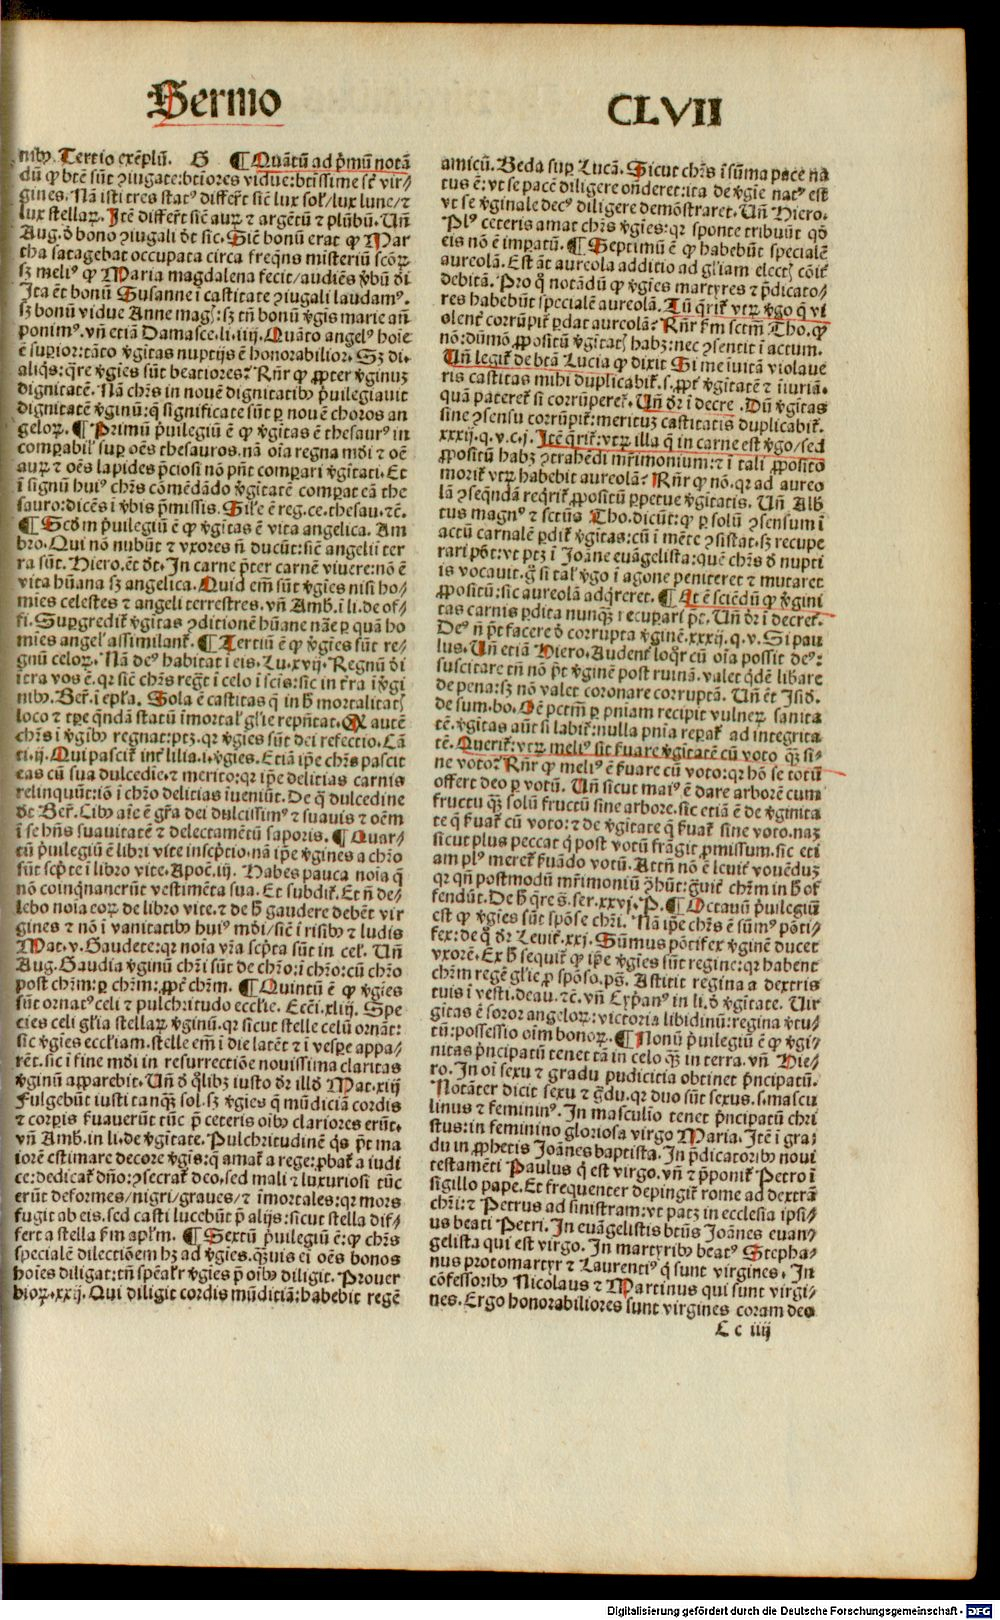 Sermo CLVII
nibꝰ. Tertio exẽplũ. G ¶ Quãtũ ad p̃mũ notã
dũ ꝙ bñ sũt ꝯiugate: btiores vidue: btissime st̃ vir/
gines. Nã isti tres statꝰ differt̃ sic̃ lux sol̃/lux lune/ ⁊
lux stellaꝝ. Itẽ differt̃ sic̃ auꝝ ⁊ argẽtũ ⁊ plũbũ. Uñ
Aug. d̃ bono ꝯiugali d̃t sic. Sic̃ bonũ erat ꝙ Mar
tha satagebat occupata circa freq̃ns misteriũ sc̃oꝝ
sꝫ meliꝰ ꝙ Maria magdalena fecit/ audiẽs ṽbũ d̃i
Ita ẽt bonũ Susanne ĩ castitate ꝯiugali laudamꝰ.
sꝫ bonũ vidue Anne magꝭ: sꝫ tñ bonũ v̓gis marie añ
ponimꝰ. vñ etiã Damasce. li. iiij. Quãto angelꝰ hoĩe
ẽ supior: tãto v̓gitas nuptijs ẽ honorabilior. Sꝫ di⸗
aliq̃s: q̃re v̓gies sũt beatiores? Rñr ꝙ ꝓpter v̓ginuꝫ
dignitatẽ. Nã chr̃s in nouẽ dignitatibꝰ p̃uilegiauit
dignitatẽ v̓ginũ: q̃ significate sũt ꝑ nouẽ choros an
geloꝝ. ¶ Primũ p̃uilegiũ ẽ ꝙ v̓gitas ẽ thesaurꝰ in
compabil̃ sup oẽs thesauros. nã oĩa regna mũdi ⁊ oẽ
auꝝ ⁊ oẽs lapides p̃ciosi nõ pñt compari v̓gĩtati. Et
ĩ signũ huiꝰ chr̃s cõmẽdãdo v̓gitatẽ compat eã the
sauro: dicẽs ĩ v̓bis p̃missis. Sil̃e ẽ reg. ce. thesau. ⁊c̃.
¶ Scd̃m p̃uilegiũ ẽ ꝙ v̓gitas ẽ vita angelica. Am
bro. Qui nõ nubũt ⁊ vxores ñ ducũt: sic̃ angeli ĩ ter
ra sũt. Hiero. ẽt d̃t. In carne p̃ter carnẽ viuere: nõ ẽ
vita hũana sꝫ angelica. Quid em̃ sũt v̓gies nisi ho⸗
mies celestes ⁊ angeli terrestres. vñ Amb. ĩ li. de of⸗
fi. Supgredit̃ v̓gitas ꝯditionẽ hũane nãe ꝑ quã ho
mies angel̃ assimilant̃. ¶ Tertiũ ẽ ꝙ v̓gies sũt re⸗
gnũ celoꝝ. Nã deꝰ habitat ĩ eis. Lu. xvij. Regnũ d̃i
ĩtra vos ẽ. qꝛ sic̃ chr̃s reg̃t ĩ celo ĩ sc̃is: sic in t̃ra ĩ v̓gi
nibꝰ. Ber̃. ĩ epl̃a. Sola ẽ castitas q̃ in h̃ mortalitatꝭ
loco ⁊ tp̃e q̃ndã statũ ĩmortal̃ gl̃ie rep̃ñtat. Q̃ autẽ
chr̃s ĩ v̓gibꝰ regnat: ptꝫ. qꝛ v̓gies sũt dei refectio. Cã
ti. ij. Qui pascit̃ int̃ lilia. i. v̓gies. Etiã ip̃e chr̃s pascit
eas cũ sua dulcedie. ⁊ merito: qꝛ ip̃e delicias carnis
relinquũt: iõ ĩ chr̃o delicias ĩueniũt. De q̃ dulcedine
d̃t Ber̃. Cibꝰ aĩe ẽ gr̃a dei dulcissimꝰ ⁊ suauis ⁊ oẽm
ĩ se hñs suauitatẽ ⁊ delectamẽtũ saporis. ¶ Quar⸗
tũ p̃uilegiũ ẽ libri vite inscp̃tio. nã ip̃e v̓gines a chr̃o
sũt scp̃te ĩ libro vite. Apoc̃. iij. Habes pauca noĩa q̃
nõ coinq̃nauerũt vestimẽta sua. Et subdit̃. Et ñ de⸗
lebo noĩa eoꝝ de libro vite. ⁊ de h̃ gaudere debẽt vir
gines ⁊ nõ ĩ vanitatibꝰ huiꝰ mũdi/ sic̃ ĩ risibꝰ ⁊ ludis
Mat. v. Gaudete: qꝛ noĩa vr̃a scp̃ta sũt in cel̃. Uñ
Aug. Gaudia v̓ginũ chr̃i sũt de chr̃o: ĩ chr̃o: cũ chr̃o
post chr̃m: ꝑ chr̃m: ꝓpt̃ chr̃m. ¶ Quintũ ẽ ꝙ v̓gies
sũt ornatꝰ celi ⁊ pulchritudo eccl̃ie. Ecc̃i. xliij. Spe
cies celi gl̃ia stellaꝝ v̓ginũ. qꝛ sicut stelle celũ ornãt:
sic v̓gies eccl̃iam. stelle em̃ ĩ die latẽt ⁊ ĩ vespe appa⸗
rẽt. sic ĩ fine mũdi in resurrectiõe nouissima claritas
v̓ginũ apparebit. Uñ d̃ q̃libꝫ iusto d̃r illd̃ Mat. xiij
Fulgebũt iusti tanq̃ꝫ sol. sꝫ v̓gies q̃ mũdiciã cordis
⁊ corpis s̓uauerũt tũc p̃ ceteris oibꝰ clariores erũt.
vñ Amb. in li. de v̓gitate. Pulchritudinẽ q̃s p̃t ma
iorẽ estimare decore v̓gis: q̃ amat̃ a rege: ꝓbat̃ a iudi
ce: dedicat̃ dño: ꝯsecrat̃ deo. sed mali ⁊ luxuriosi tũc
erũt deformes/ nigri/ graues/ ⁊ ĩmortales: qꝛ mors
fugit ab eis. sed casti lucebũt p̃ alijs: sicut stella dif⸗
fert a stella s̓m apl̃m. ¶ Sextũ p̃uilegiũ ẽ: ꝙ chr̃s
specialẽ dilectiõem hꝫ ad v̓gies. q̃ꝫuis ei oẽs bonos
hoĩes diligat: tñ sp̃ealr̃ v̓gies p̃ oibꝰ diligit. Prouer
bioꝝ. xxij. Qui diligit cordis mũditiã: habebit regẽ
amicũ. Beda sup Lucã. Sicut chr̃s ĩ sũma pace na
tus ẽ: vt se pacẽ diligere oñderet: ita de v̓gie natꝰ est
vt se v̓ginale decꝰ diligere demõstraret. Uñ Hiero.
Plꝰ ceteris amat chr̃s v̓gies: qꝛ sponte tribuũt qd̃
eis nõ ẽ impatũ. ¶ Septimũ ẽ ꝙ habebũt specialẽ
aureolã. Est ãt aureola additio ad gl̃iam electꝭ cõit̃
debitã. Pro q̃ notãdũ ꝙ v̓gies martyres ⁊ p̃dicato⸗
res habebũt specialẽ aureolã. Tũ q̃rit̃ vtꝝ v̓go q̃ vi
olent̃ corrũpit̃ ꝑdat aureolã? Rñr s̓m sctm̃ Tho. ꝙ
nõ: dũmõ ꝓpositũ v̓gitatꝭ habꝫ: nec ꝯsentit ĩ actum.
Uñ legit̃ de bt̃ã Lucia ꝙ dixit Si me ĩuitã violaue
ris castitas mihi duplicabit̃. s. ꝓpt̃ v̓gitatẽ ⁊ ĩiuriã.
quã pateret̃ si corrũperet̃. Uñ d̃r ĩ decre. Dũ v̓gitas
sine ꝯsensu corrũpit̃: merituꝫ castitatis duplicabit̃.
xxxij. q. v. c. j. Itẽ q̃rit̃: vtꝝ illa q̃ in carne est v̓go/ sed
ꝓpositũ habꝫ ꝯtrahẽdi mr̃imonium: ⁊ ĩ tali ꝓposito
morit̃ vtꝝ habebit aureolã? Rñr ꝙ nõ. qꝛ ad aureo
lã ꝯseq̃ndã req̃rit̃ ꝓpositũ ꝑpetue v̓gitatis. Uñ Alb̃
tus magnꝰ ⁊ sctũs Tho. dicũt: ꝙ ꝑ solũ ꝯsensum ĩ
actũ carnalẽ ꝑdit̃ v̓gitas: cũ ĩ mẽte ꝯsistat. sꝫ recupe
rari põt: vt ptꝫ ĩ Joãne euãgelista: quẽ chr̃s d̃ nupti
is vocauit. g̃ si tal̃ v̓go ĩ agone peniteret ⁊ mutaret
ꝓpositũ: sic aureolã adq̃reret. ¶ At ẽ sciẽdũ ꝙ v̓gini
tas carnis ꝑdita nunq̃ꝫ recuparĩ p̃t. Uñ d̃r ĩ decret̃.
Deꝰ ñ p̃t facere d̃ corrupta v̓ginẽ. xxxij. q. v. Si pau
lus. Uñ etiã Hiero. Audent̃ loq̃r cũ oĩa possit deꝰ:
suscitare tñ nõ p̃t v̓ginẽ post ruinã. valet q̃dẽ lib̃are
de pena: sꝫ nõ valet coronare corruptã. Uñ ẽt Isid̃.
de sum. bo. Oẽ pctm̃ ꝑ pñiam recipit vulneꝝ sanita
tẽ. v̓gitas aut̃ si labit̃: nulla pñia repat̃ ad integrita
tẽ. Querit̃: vtꝝ meliꝰ sit s̓uare v̓gitatẽ cũ voto q̃ꝫ si⸗
ne voto? Rñr ꝙ meliꝰ ẽ s̓uare cũ voto: qꝛ hõ se totũ
offert deo ꝑ votũ. Uñ sicut maiꝰ ẽ dare arborẽ cum
fructu q̃ꝫ solũ fructũ sine arbore. sic etiã ẽ de v̓ginita
te q̃ s̓uat̃ cũ voto: ⁊ de v̓gitate q̃ s̓uat̃ sine voto. naꝫ
sicut plus peccat q̃ post votũ frãgit ꝓmissum. sic eti
am plꝰ meret̃ s̓uãdo votũ. Attñ nõ ẽ leuit̃ vouẽduꝫ
qꝛ qñ postmodũ mr̃imoniũ ꝯhũt: g̃uit̃ chr̃m in h̃ of
fendũt. De h̃ q̃re s̃. ser. xxvj. P. ¶ Octauũ p̃uilegiũ
est ꝙ v̓gies sũt spõse chr̃i. Nã ip̃e chr̃s ẽ sũmꝰ põti⸗
fex: de q̃ d̃r Leuit̃. xxj. Sũmus põtifex v̓ginẽ ducet
vxorẽ. Ex h̃ sequit̃ ꝙ ip̃e v̓gies sũt regine: qꝛ habent
chr̃m regẽ gl̃ie ꝑ spõso. ps̃. Astitit regina a dextris
tuis ĩ vesti. deau. ⁊c̃. vñ Cyp̃anꝰ in li. d̃ v̓gitate. Uir
gitas ẽ soror angeloꝝ: victoria libidinũ: regina v̓tu⸗
tũ: possessio oĩm bonoꝝ. ¶ Nonũ p̃uilegiũ ẽ ꝙ v̓gi⸗
nitas p̃ncipatũ tenet tã in celo q̃ꝫ in terra. vñ Hie⸗
ro. In oĩ sexu ⁊ gradu pudicitia obtinet p̃ncipatũ.
Notãter dicit sexu ⁊ g̃dũ. qꝛ duo sũt sexus. s. mascu
linus ⁊ femininꝰ. In masculio tenet p̃ncipatũ chri
stus: in feminino gloriosa virgo Maria. Itẽ ĩ gra⸗
du in ꝓphetis Joãnes baptista. In p̃dicatoribꝰ noui
testamẽti Paulus q̃ est virgo. vñ ⁊ p̃ponit̃ Petro ĩ
sigillo pape. Et frequenter depingit̃ rome ad dextrã
chr̃i: ⁊ Petrus ad sinistram: vt patꝫ in ecclesia ipsi⸗
us beati Petri. In euãgelistis btũs Joãnes euan⸗
gelista qui est virgo. In martyribꝰ beatꝰ Stepha⸗
nus protomartyr ⁊ Laurentiꝰ q̃ sunt virgines. In
cõfessoribꝰ Nicolaus ⁊ Martinus qui sunt virgi⸗
nes. Ergo honorabiliores sunt virgines coram deo
Cc iiij
Digitalisierung gefördert durch die Deutsche Forschungsgemeinschaft - DFG